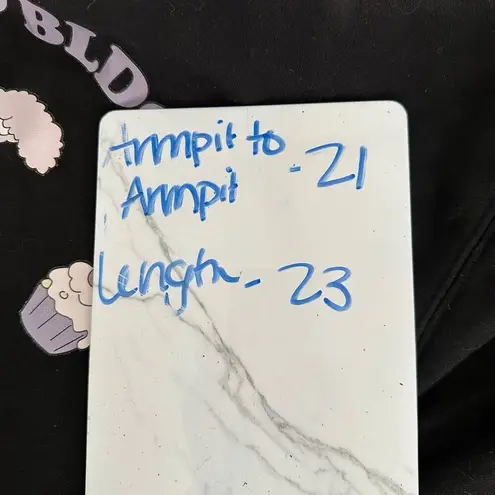 UBLD
Armpit to
Armpit - 21
Length - 23